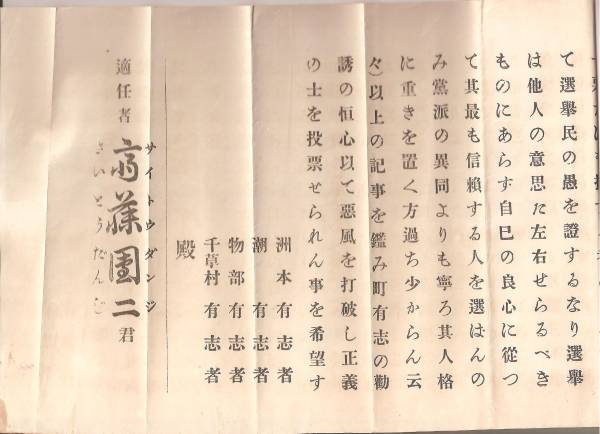 て選擧民の愚を證するなり選擧
は他人の意思に左右せらるべき
ものにあらず自巳の良心に從つ
て其最も信賴する人を選はんの
み黨派の異同よりも寧ろ其人格
に重きを置く方過ち少からん云
々)以上の記事を鑑み町有志の勸
誘の恒心以て惡風を打破し正義
の士を投票せられん事を希望す
洲本有志者
潮有志者
物部有志者
千草村有志者
殿
適任者 齋藤團二君
サイトウダンジ
さいとうだんじ